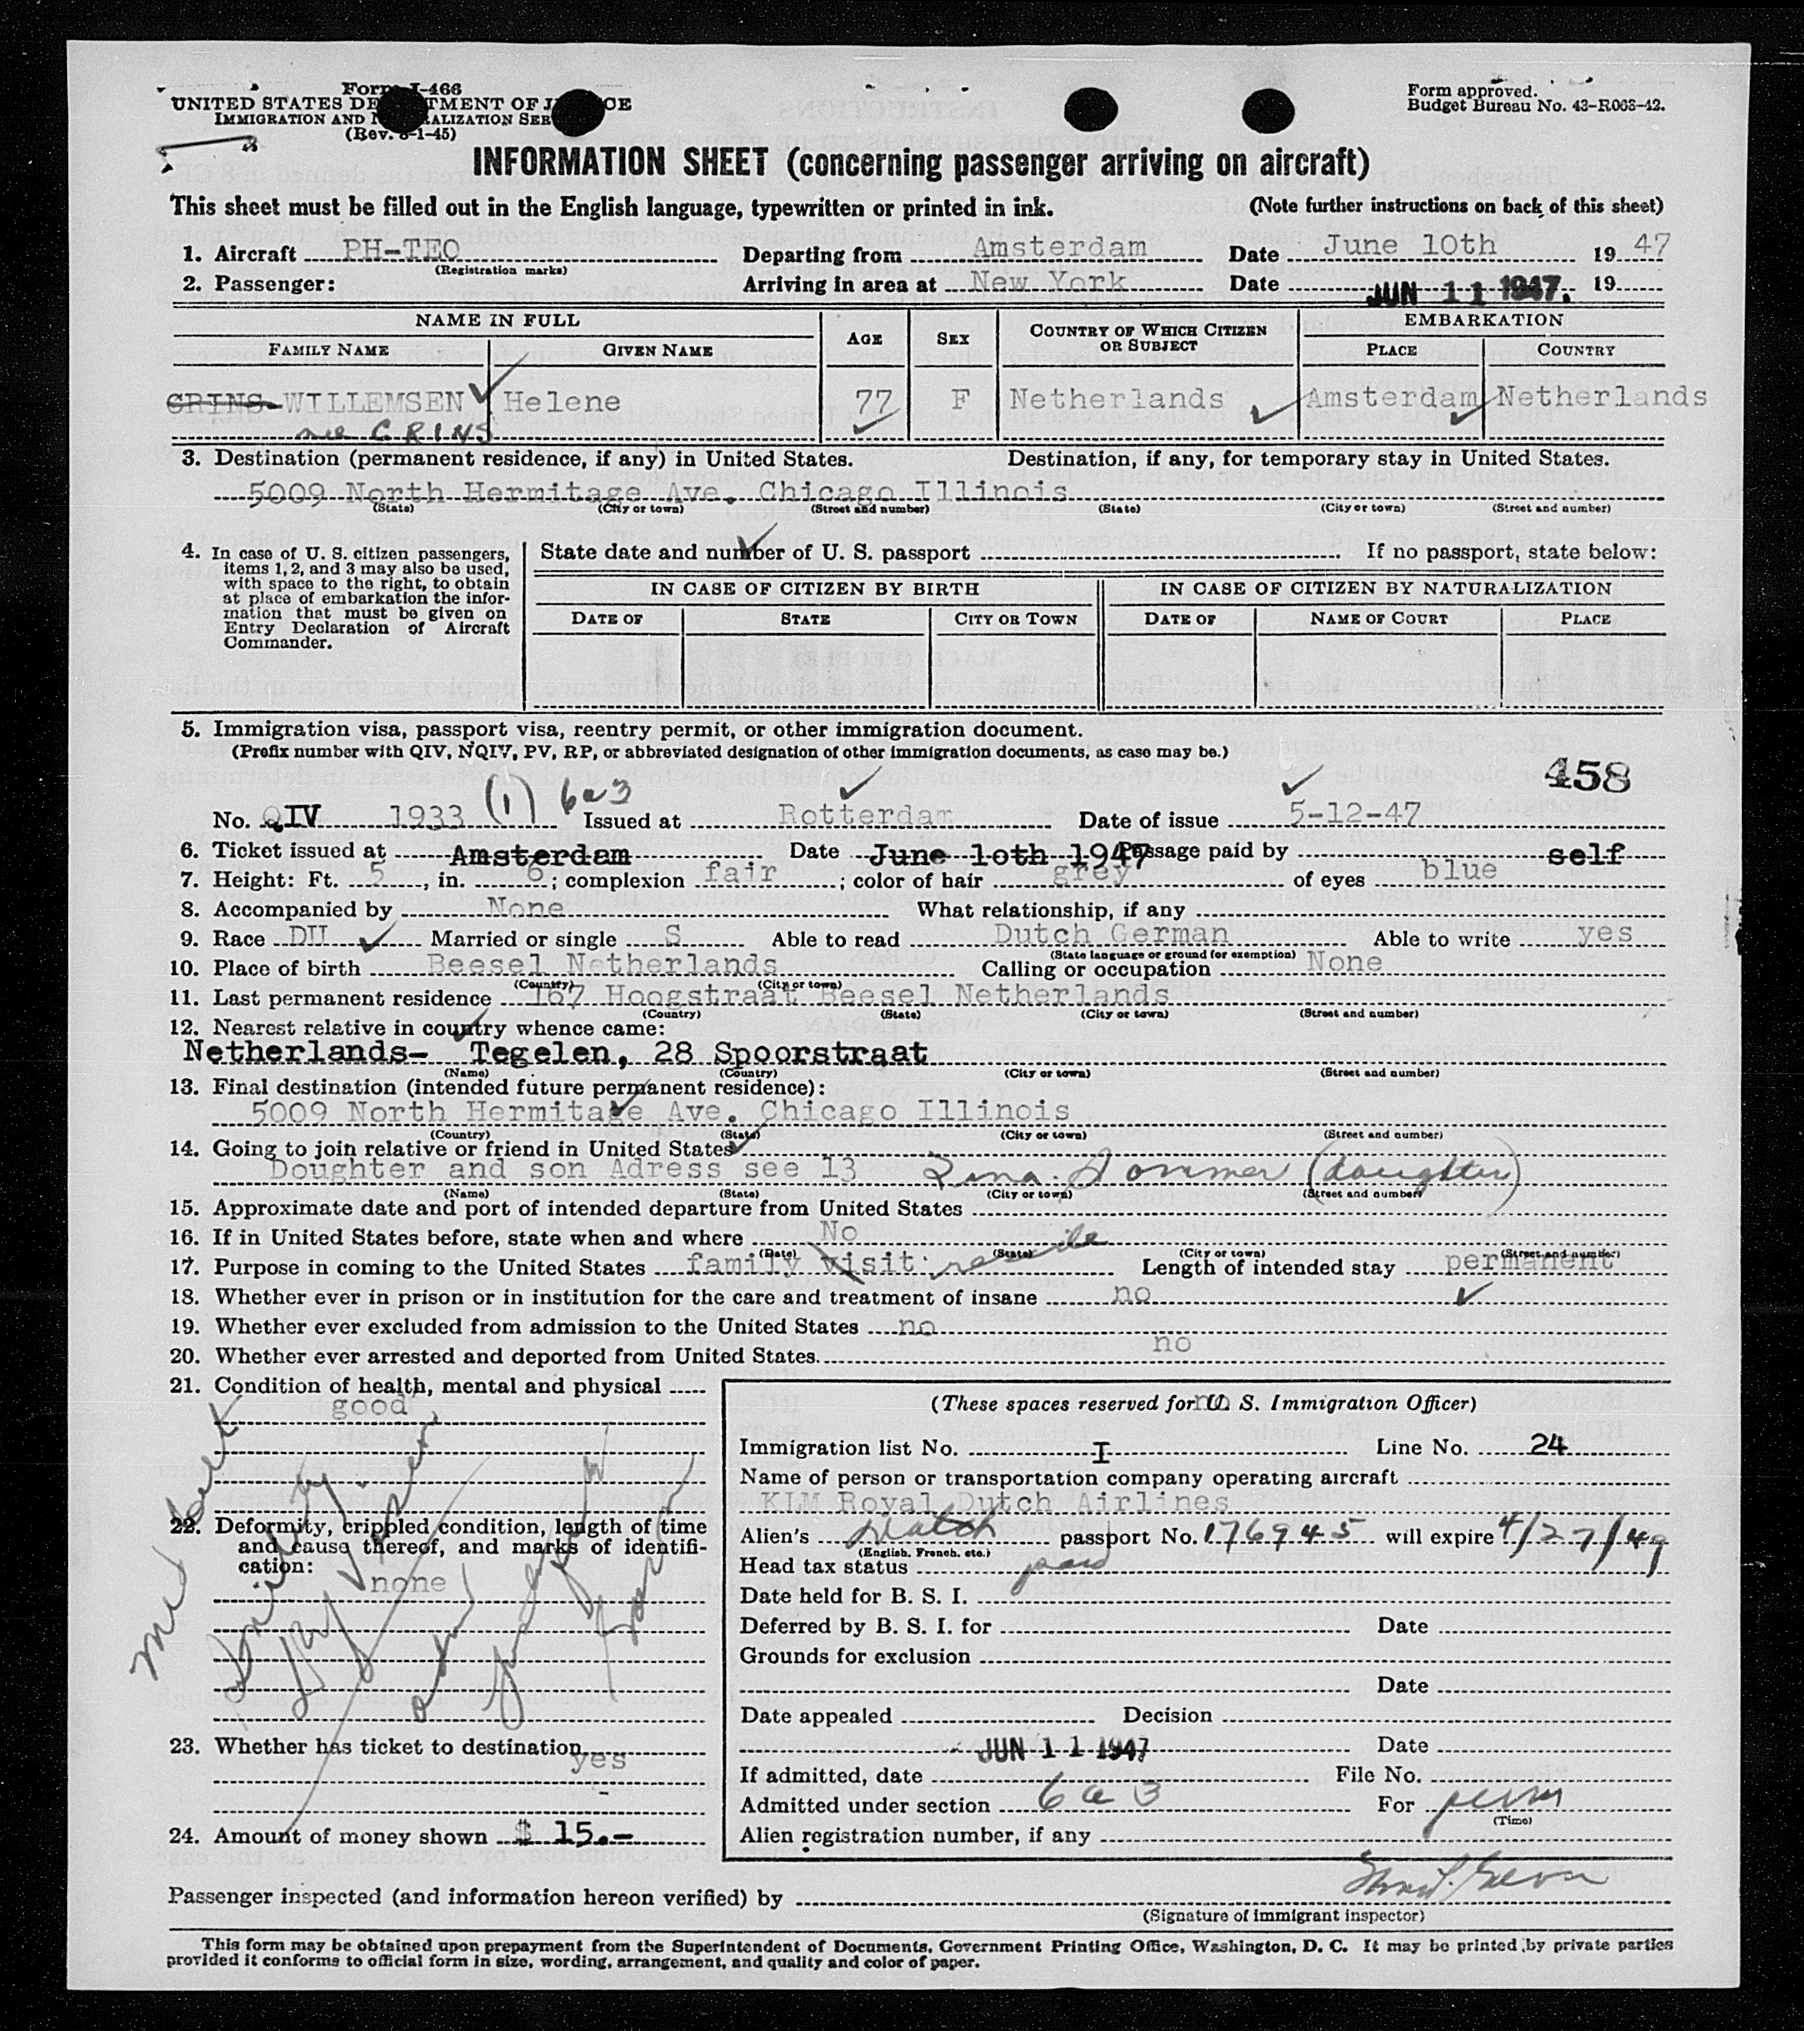 Form I-466
UNITED STATES DEPARTMENT OF JUSTICE
IMMIGRATION AND NATURALIZATION SER
(Rev. 8-1-45)
Form approved.
Budget Bureau No. 43-R063-42.
INFORMATION SHEET (concerning passenger arriving on aircraft)
This sheet must be filled out in the English language, typewritten or printed in ink. (Note further instructions on back of this sheet)
1. Aircraft PH-TEO Departing from Amsterdam Date June 10th 1947
(Registration marks)
2. Passenger: Arriving in area at New York Date JUN 11 1947. 19
NAME IN FULL AGE SEX COUNTRY OF WHICH CITIZEN OR SUBJECT EMBARKATION
FAMILY NAME GIVEN NAME PLACE COUNTRY
GRINS-WILLEMSEN Helene 77 F Netherlands Amsterdam Netherlands
nee GRINS
3. Destination (permanent residence, if any) in United States. Destination, if any, for temporary stay in United States.
5009 North Hermitage Ave. Chicago Illinois
(State) (City or town) (Street and number) (State) (City or town) (Street and number)
4. In case of U. S. citizen passengers, items 1, 2, and 3 may also be used, with space to the right, to obtain at place of embarkation the information that must be given on Entry Declaration of Aircraft Commander.
State date and number of U. S. passport If no passport, state below:
IN CASE OF CITIZEN BY BIRTH IN CASE OF CITIZEN BY NATURALIZATION
DATE OF STATE CITY OR TOWN DATE OF NAME OF COURT PLACE
5. Immigration visa, passport visa, reentry permit, or other immigration document.
(Prefix number with QIV, NQIV, PV, RP, or abbreviated designation of other immigration documents, as case may be.)
458
No. QIV 1933 (1) 6a3 Issued at Rotterdam Date of issue 5-12-47
6. Ticket issued at Amsterdam Date June 1oth 1947 Passage paid by self
7. Height: Ft. 5, in. 6; complexion fair; color of hair grey of eyes blue
8. Accompanied by None What relationship, if any
9. Race DU Married or single S Able to read Dutch German Able to write yes
(State language or ground for exemption)
10. Place of birth Beesel Netherlands Calling or occupation None
(Country) (City or town)
11. Last permanent residence 167 Hoogstraat Beesel Netherlands
(Country) (State) (City or town) (Street and number)
12. Nearest relative in country whence came:
Netherlands- Tegelen, 28 Spoorstraat
(Name) (Country) (City or town) (Street and number)
13. Final destination (intended future permanent residence):
5009 North Hermitage Ave. Chicago Illinois
(Country) (State) (City or town) (Street and number)
14. Going to join relative or friend in United States
Doughter and son Adress see 13 Lina Sommer (daughter)
(Name) (State) (City or town) (Street and number)
15. Approximate date and port of intended departure from United States
16. If in United States before, state when and where No
(Date) (State) (City or town) (Street and number)
17. Purpose in coming to the United States family visit reside Length of intended stay permanent
18. Whether ever in prison or in institution for the care and treatment of insane no
19. Whether ever excluded from admission to the United States no
20. Whether ever arrested and deported from United States. no
21. Condition of health, mental and physical
good
22. Deformity, crippled condition, length of time and cause thereof, and marks of identification:
none
Med cert
23. Whether has ticket to destination yes
24. Amount of money shown $ 15.-
(These spaces reserved for U. S. Immigration Officer)
no
Immigration list No. I Line No. 24
Name of person or transportation company operating aircraft
KLM Royal Dutch Airlines
Alien's Dutch passport No. 176945 will expire 4/27/49
(English, French, etc.)
Head tax status paid
Date held for B. S. I.
Deferred by B. S. I. for Date
Grounds for exclusion
Date
Date appealed Decision
JUN 11 1947 Date
If admitted, date File No.
Admitted under section 6a3 For perm
(Time)
Alien registration number, if any
Passenger inspected (and information hereon verified) by
(Signature of immigrant inspector)
This form may be obtained upon prepayment from the Superintendent of Documents, Government Printing Office, Washington, D. C. It may be printed by private parties
provided it conforms to official form in size, wording, arrangement, and quality and color of paper.